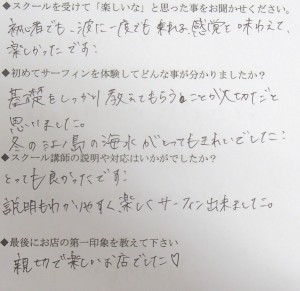 ◆スクールを受けて「楽しいな」と思った事をお聞かせください。
初心者でも、波に一度でも乗れる感覚を味わえて、
楽しかったです!
◆初めてサーフィンを体験してどんな事が分かりましたか？
基礎をしっかり教えてもらうことが大切だと
思いました。
冬の江ノ島の海水がとってもきれいでした!
◆スクール講師の説明や対応はいかがでしたか？
とっても良かったです!
説明もわかりやすく楽しくサーフィン出来ました。
◆最後にお店の第一印象を教えて下さい
親切で楽しいお店でした♡